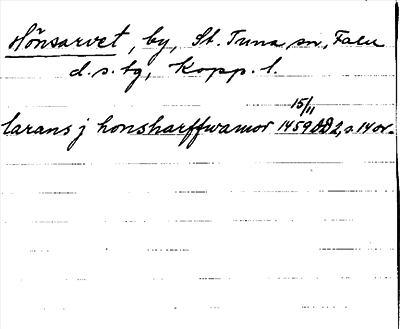 Hönsarvet, by, St. Tuna sn, Falu
d.s. tg, Kopp. l.
15/11
larans j honsharffwamor 1459 DD 2, s. 14 or.